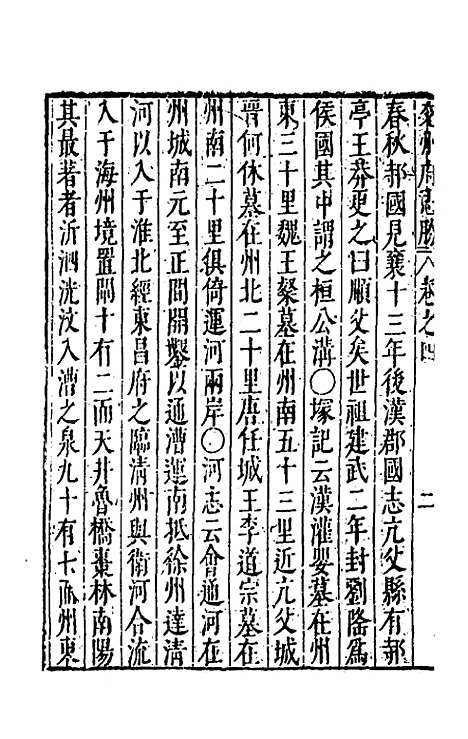 兖州府志勝 卷之四 二
春秋邿國見襄十三年後漢郡國志亢父縣有邿
亭王莽更之曰順父矣世祖建武二年封劉隆爲
侯國其中謂之桓公溝〇塚記云漢灌嬰墓在州
東三十里魏王粲墓在州南五十三里近亢父城
晉何休墓在州北二十里唐任城王李道宗墓在
州南二十里俱倚運河兩岸〇河志云會通河在
州城南元至正間開鑿以通漕運南抵徐州達清
河以入于淮北經東昌府之臨清州與衛河合流
入于海州境置閘十有二而天井魯橋棗林南陽
其最著者沂泗洸汶入漕之泉九十有七而州東